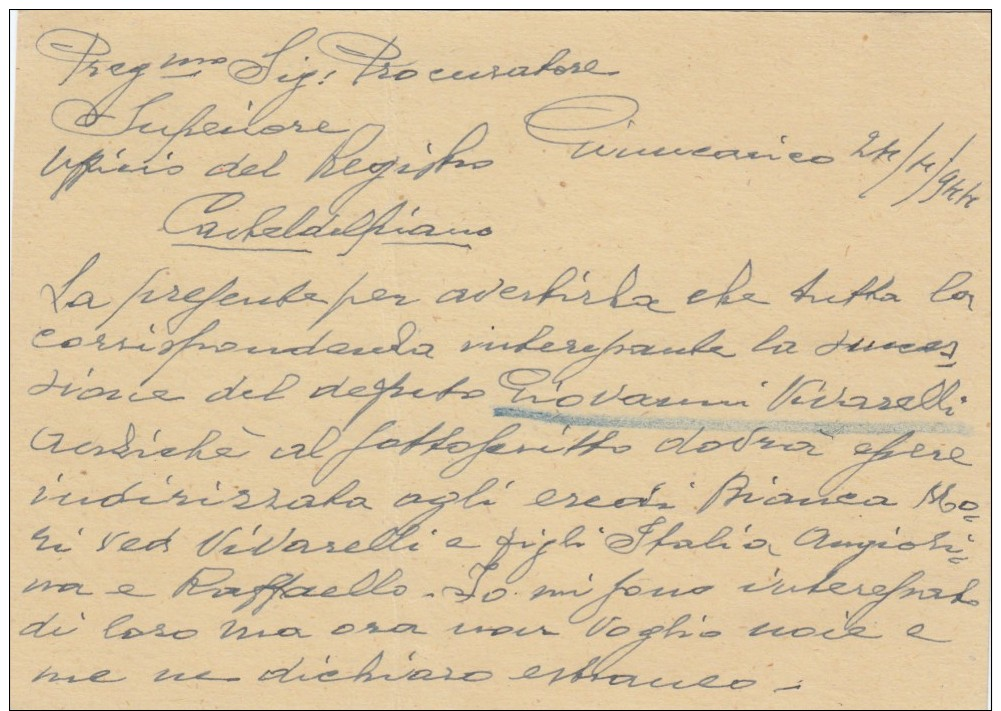 Preg.mo Sig: Procuratore
Superiore
Ufficio del Registro
Giuncarico 24/4/944
Casteldelpiano
La presente per avertirla che tutta la
corrispondenza interessante la succes=
sione del defunto Giovanni Vivarelli
anzichè al sottoscritto dovrà essere
indirizzata agli eredi Bianca Mo=
ri ved Vivarelli e figli Italia Angioli=
na e Raffaello. Io mi sono interessato
di loro ma ora non voglio noie e
me ne dichiaro estraneo.-